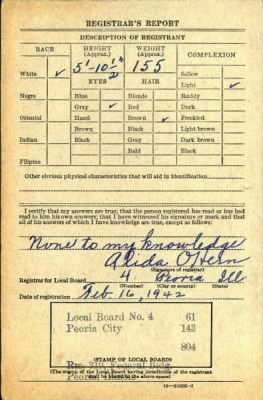 REGISTRAR'S REPORT
DESCRIPTION OF REGISTRANT
RACE HEIGHT (Approx.) WEIGHT (Approx.) COMPLEXION
5'-10½" 155
White ✓ Sallow
EYES HAIR Light ✓
Negro Blue Blonde Ruddy
Gray ✓ Red Dark
Oriental Hazel Brown ✓ Freckled
Brown Black Light brown
Indian Black Gray Dark brown
Bald Black
Filipino
Other obvious physical characteristics that will aid in identification
I certify that my answers are true; that the person registered has read or has had
read to him his own answers; that I have witnessed his signature or mark and that
all of his answers of which I have knowledge are true, except as follows:
None to my knowledge
Alida
(Signature of registrar)
Registrar for Local Board 4 Peoria Ill
(Number) (City or county) (State)
Date of registration Feb. 16, 1942
Local Board No. 4 61
Peoria City 143
804
Rm. 310, Federal Bldg.
(STAMP OF LOCAL BOARD)
Peoria
(The stamp of the Local Board having jurisdiction of the registrant
shall be placed in the above space)